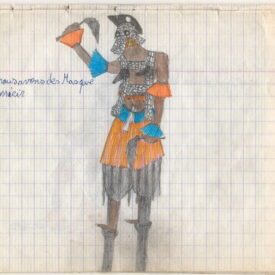 nous avons des Masque